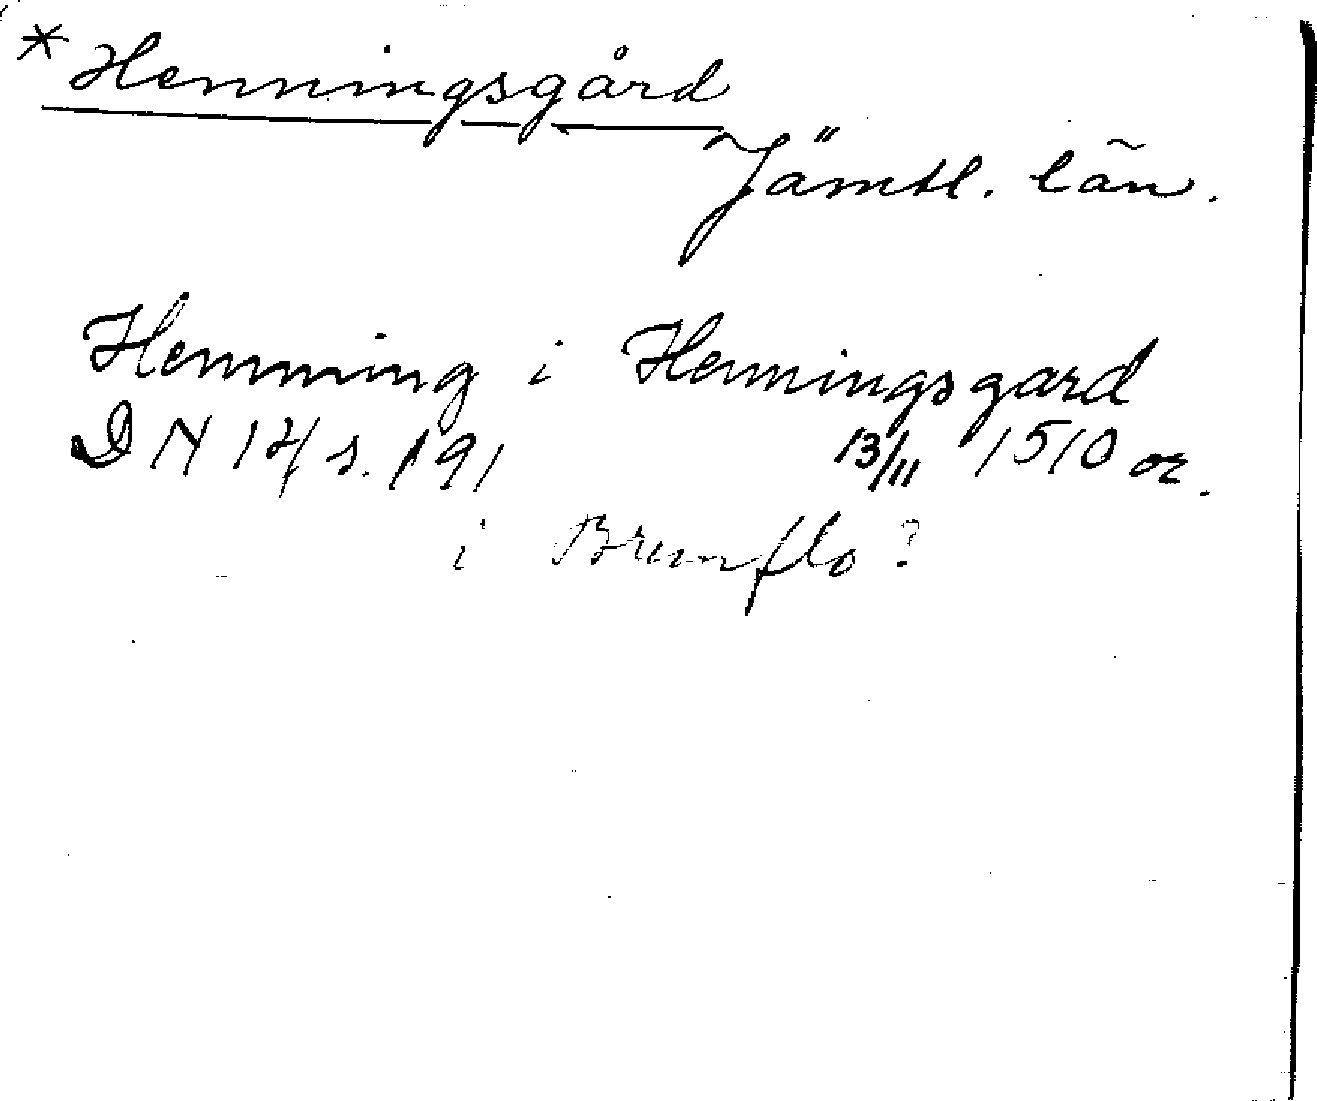 * Henningsgård
Jämtl. län.
Hemming i Henningsgard
DN 14 s. 191 13/11 1510 or.
i Brunflo?